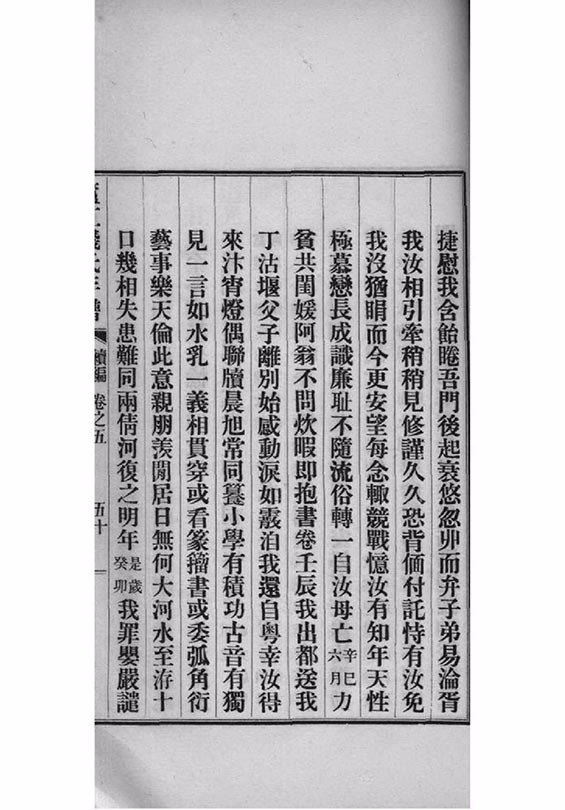 捷慰我含飴睠吾門後起衰悠忽丱而弁子弟易淪胥
我汝相引牽稍稍見修謹久久恐背偭付託恃有汝免
我沒猶睊而今更安望每念輒競戰憶汝有知年天性
極慕戀長成識廉恥不隨流俗轉一自汝母亡辛巳六月力
貧共閨媛阿翁不問炊暇即抱書卷壬辰我出都送我
丁沽堰父子離別始感動淚如霰洎我還自粵幸汝得
來汴宵燈偶聯牘晨旭常同籑小學有積功古音有獨
見一言如水乳一義相貫穿或看篆籀書或委弧角衍
藝事樂天倫此意親朋羨閒居日無何大河水至洊十
口幾相失患難同兩倩河復之明年是歲癸卯我罪嬰嚴譴
續編 卷之五 五十